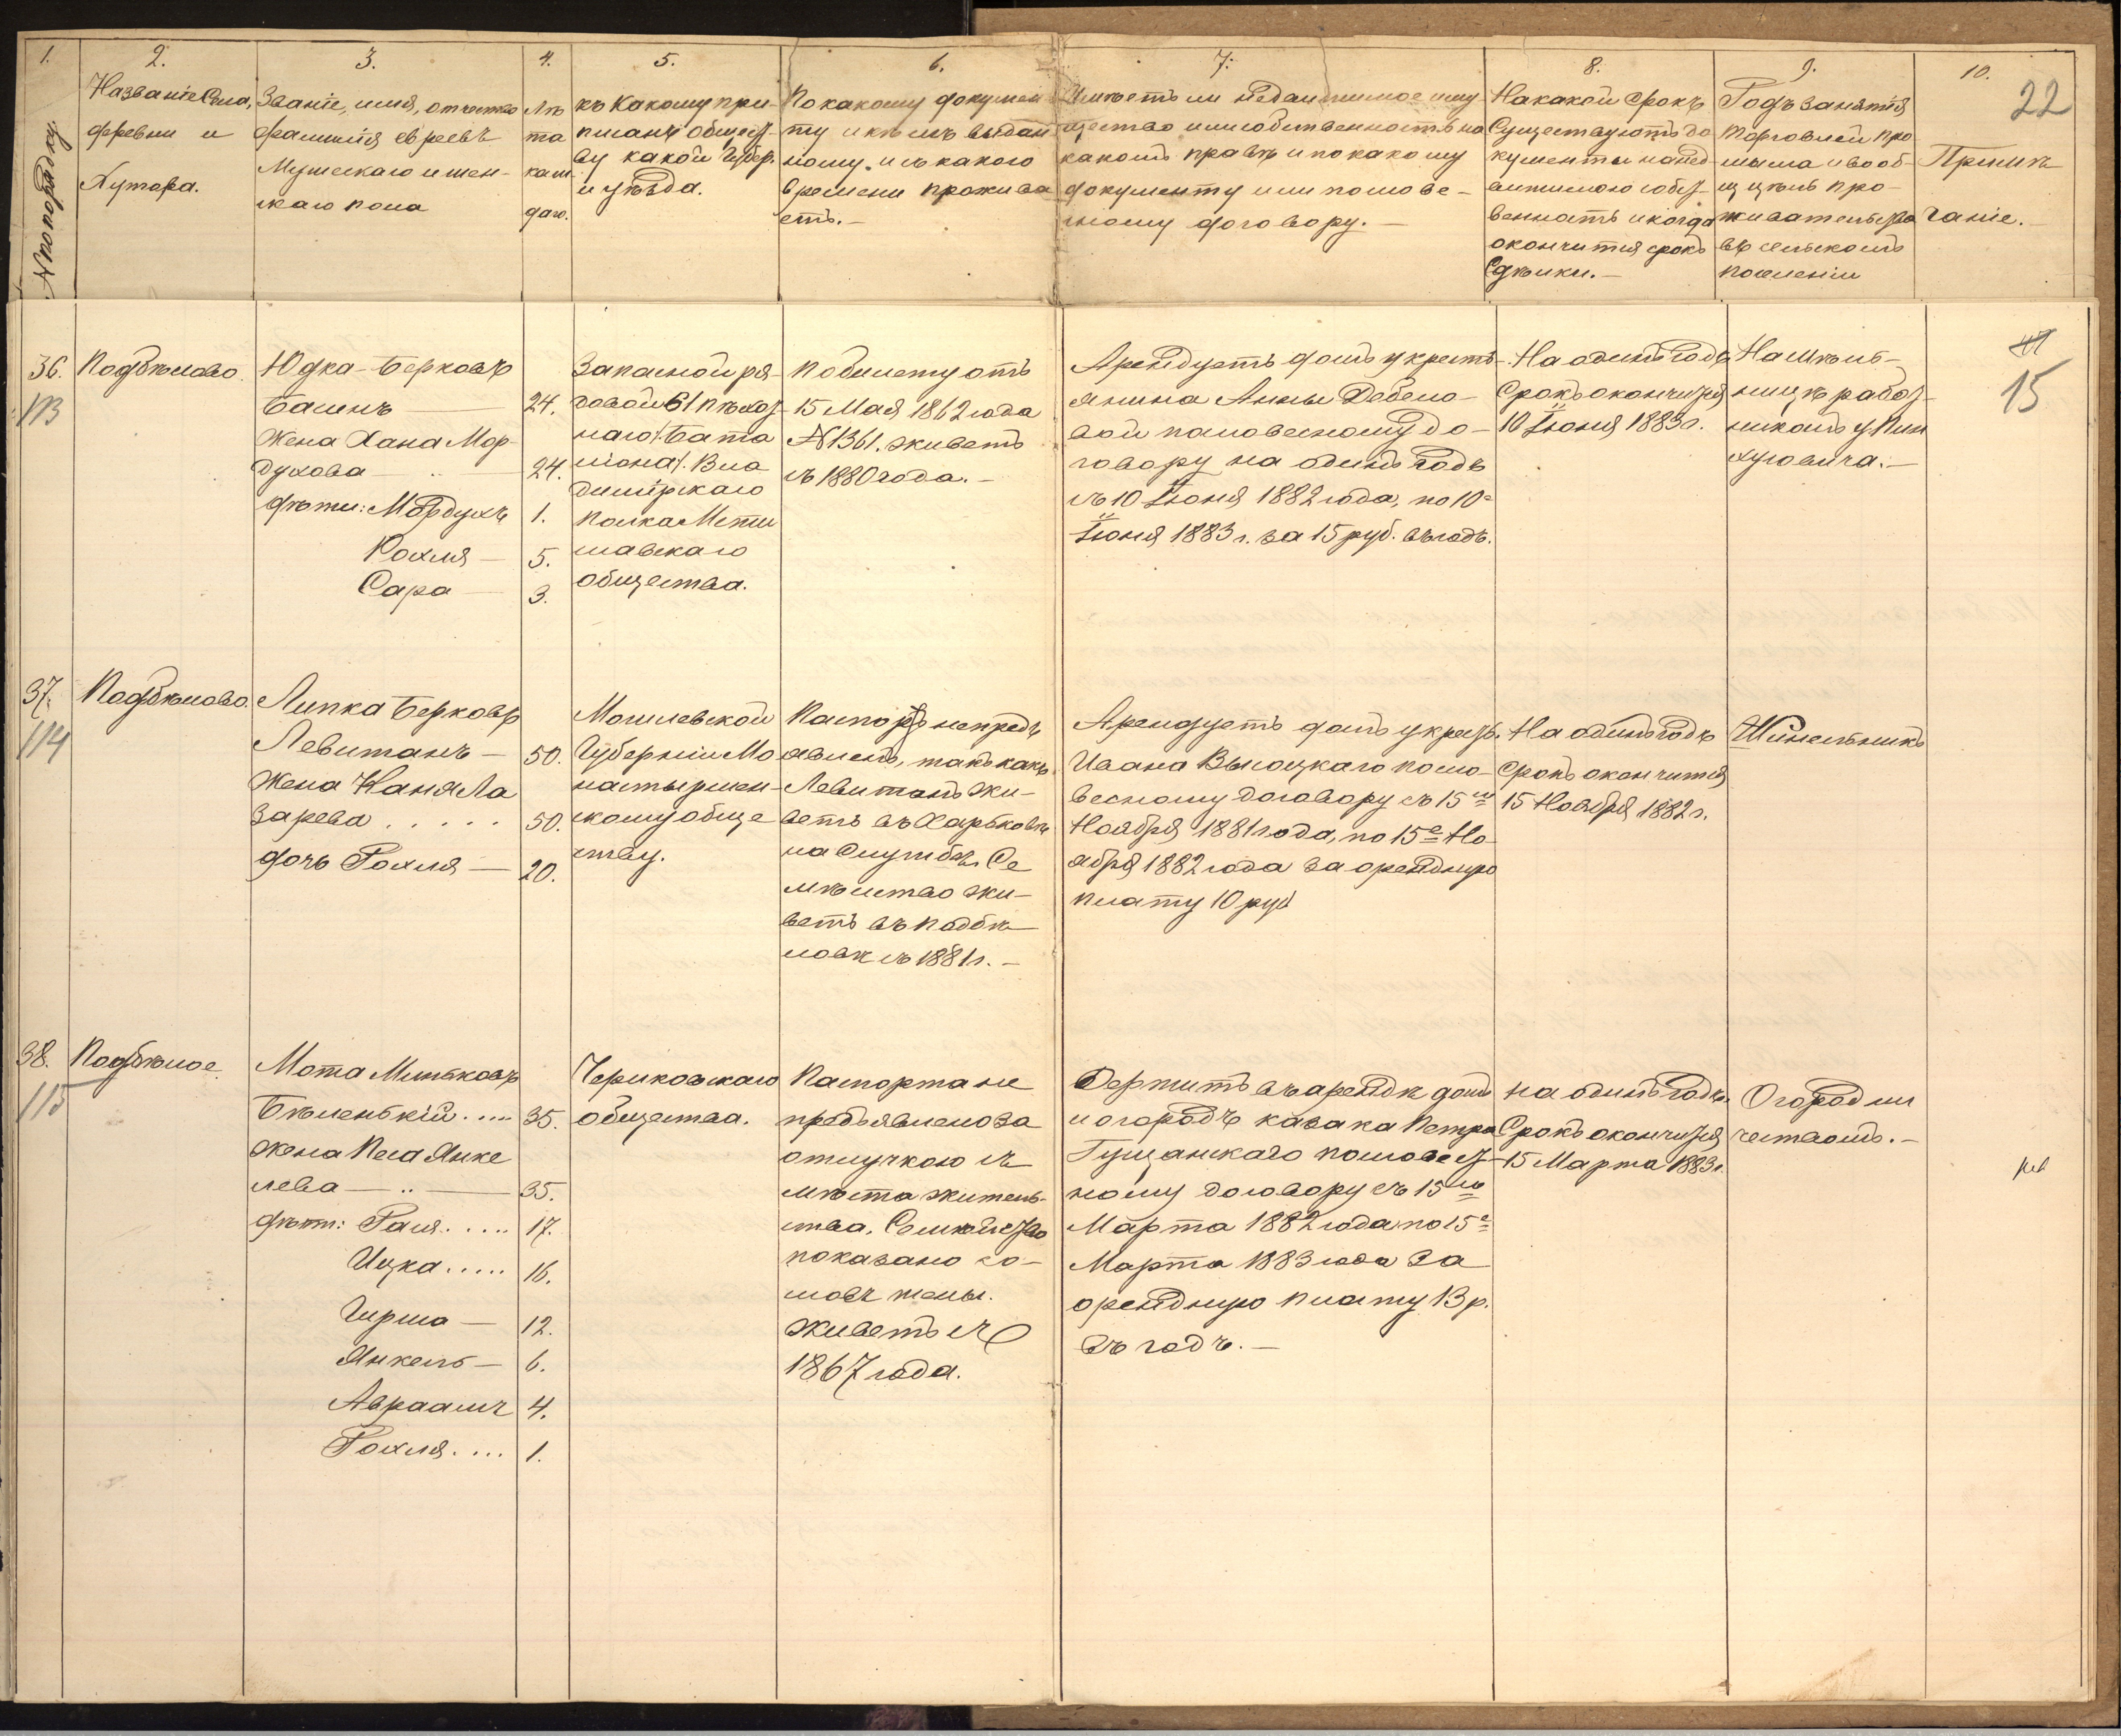 1.
2.
3.
4.
5.
6.
7.
8.
9.
10.
22
№ по порядку
Названіе Села,
деревни и
Хутора.
Званіе, имя, отчество
фамилія евреевъ
Мужескаго и жен-
скаго пола
Лѣ
та
каж
даго.
къ Какому при-
писанъ общест-
ву какой Губер.
и уѣзда.
По какому докумен
ту и кѣмъ выдан
ному. и съ какого
времени прожива
етъ.-
Имѣетъ ли недвижимое иму-
щество или собственность на
какомъ правѣ и по какому
документу или по слове-
сному договору.-
На какой срокъ
Существуютъ до
кументы на нед-
вижимою собст-
венность и когда
окончится срокъ
Сдѣлки.-
Родъ занятія
торговлей про
мысла и вооб-
ще цѣль про-
живательства
въ сельскомъ
поселеніи
Примѣ
чаніе.
36.
113
Подбѣлово.
Юдка Берковъ
Басинъ — 24.
Жена Хана Мор-
духова — 24.
дѣти: Мордухъ 1.
Рохля — 5.
Сара — 3.
Запасной ря-
довой 61 пѣхот
наго /. Бата
ліона/. Вла
димірскаго
полка Мсти
славскаго
общества.
По билету отъ
15 Мая 1862 года
№ 1361. живетъ
съ 1880 года.-
Арендуетъ домъ у кресть-
янина Анны Дебело-
вой по словесному до-
говору на одинъ годъ
съ 10 Іюня 1882 года, по 10е
Іюня 1883 г. за 15 руб. въ годъ.
На одинъ годъ
Срокъ окончится
10 Іюня 1883 г.
На мѣль-
ницѣ работ-
никомъ у Пин
хусовича.-
15
37.
114
Подбѣлово.
Липка Берковъ
Левитанъ — 50.
Жена Ханя Ла
зарева..... 50.
дочь Рохля — 20.
Могилевской
Губерніи Мо
настырщен-
скому обще
ству.
Паспортъ непредъ
явленъ, такъ какъ
Левитанъ жи-
ветъ въ Харьковѣ
на Службѣ. Се
мѣйство жи-
ветъ въ подбѣ-
ловѣ съ 1881 г.-
Арендуетъ домъ у крест.
Ивана Высоцкаго по сло-
весному договору съ 15го
Ноября 1881 года, по 15е Но-
ября 1882 года за орендную
плату 10 руб
На одинъ годъ
срокъ окончится
15 Ноября 1882 г.
Шинельникъ
38.
115
Подбѣлое.
Мота Мильковъ
Бѣленькій.... 35.
Жена Песа Янке
лева — „ — 35.
дѣти: Гася..... 17.
Ицка..... 16.
Гирша — 12.
Янкель — 6.
Авраамъ 4.
Рохля.... 1.
Чериковскаго
общества.
Паспорта не
предъявлено за
отлучкою съ
мѣста житель-
ства. Семѣйство
показано со-
словъ жены.
живетъ съ
1867 года.
Держитъ въ арендѣ домъ
и огородъ казака Петра
Гущанскаго по словест-
ному договору съ 15го
Марта 1882 года по 15е
Марта 1883 года за
орендную плату 13 р.
въ годъ.-
на одинъ годъ.
Срокъ окончится
15 Марта 1883 г.
Огородни
чествомъ.-